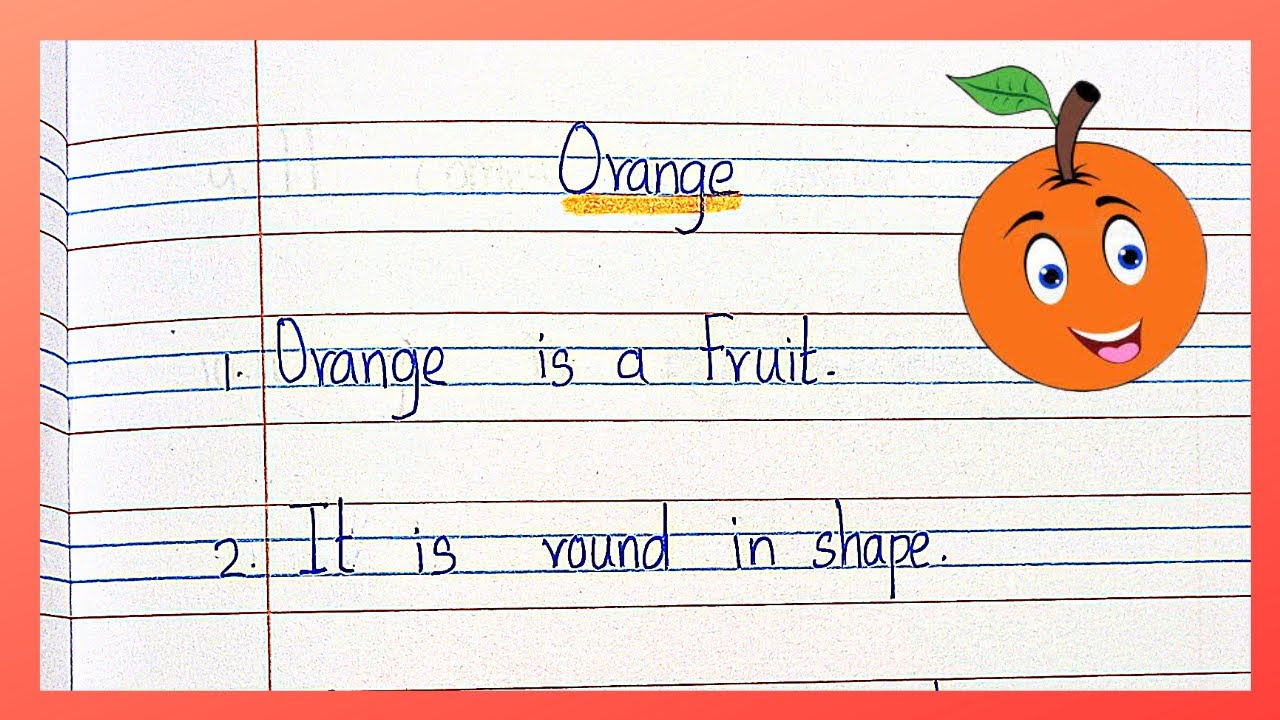 Orange
1. Orange is a fruit.
2. It is round in shape.